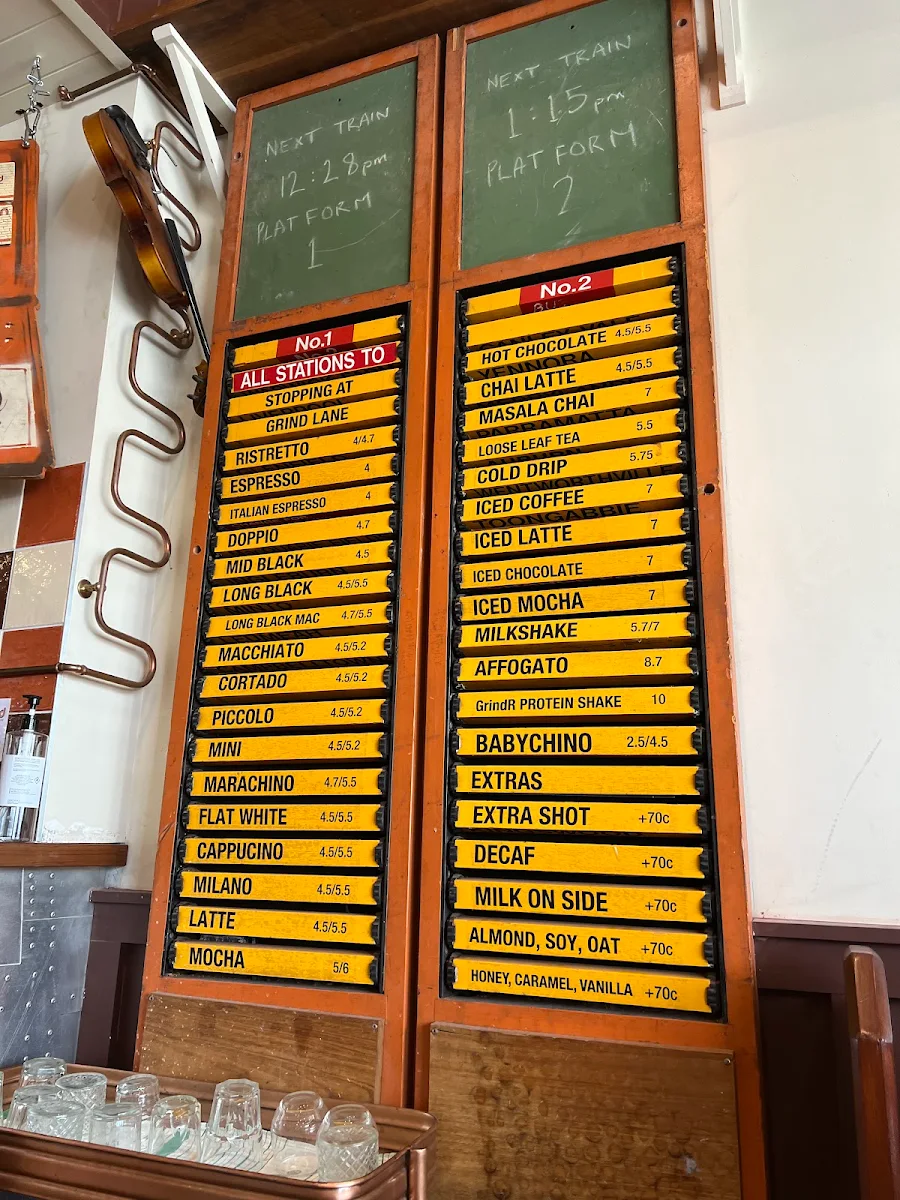 NEXT TRAIN
12:28pm
PLATFORM
1
No.1
ALL STATIONS TO
STOPPING AT
GRIND LANE
RISTRETTO 4/4.7
ESPRESSO 4
ITALIAN ESPRESSO 4
DOPPIO 4.7
MID BLACK 4.5
LONG BLACK 4.5/5.5
LONG BLACK MAC 4.7/5.5
MACCHIATO 4.5/5.2
CORTADO 4.5/5.2
PICCOLO 4.5/5.2
MINI 4.5/5.2
MARACHINO 4.7/5.5
FLAT WHITE 4.5/5.5
CAPPUCINO 4.5/5.5
MILANO 4.5/5.5
LATTE 4.5/5.5
MOCHA 5/6
NEXT TRAIN
1:15pm
PLATFORM
2
No.2
HOT CHOCOLATE 4.5/5.5
YENNORA
CHAI LATTE 4.5/5.5
MASALA CHAI 7
PARRAMATTA
LOOSE LEAF TEA 5.5
COLD DRIP 5.75
WENTWORTHVILLE
ICED COFFEE 7
TOONGABBIE
ICED LATTE 7
ICED CHOCOLATE 7
ICED MOCHA 7
MILKSHAKE 5.7/7
AFFOGATO 8.7
GrindR PROTEIN SHAKE 10
BABYCHINO 2.5/4.5
EXTRAS
EXTRA SHOT +70c
DECAF +70c
MILK ON SIDE +70c
ALMOND, SOY, OAT +70c
HONEY, CARAMEL, VANILLA +70c